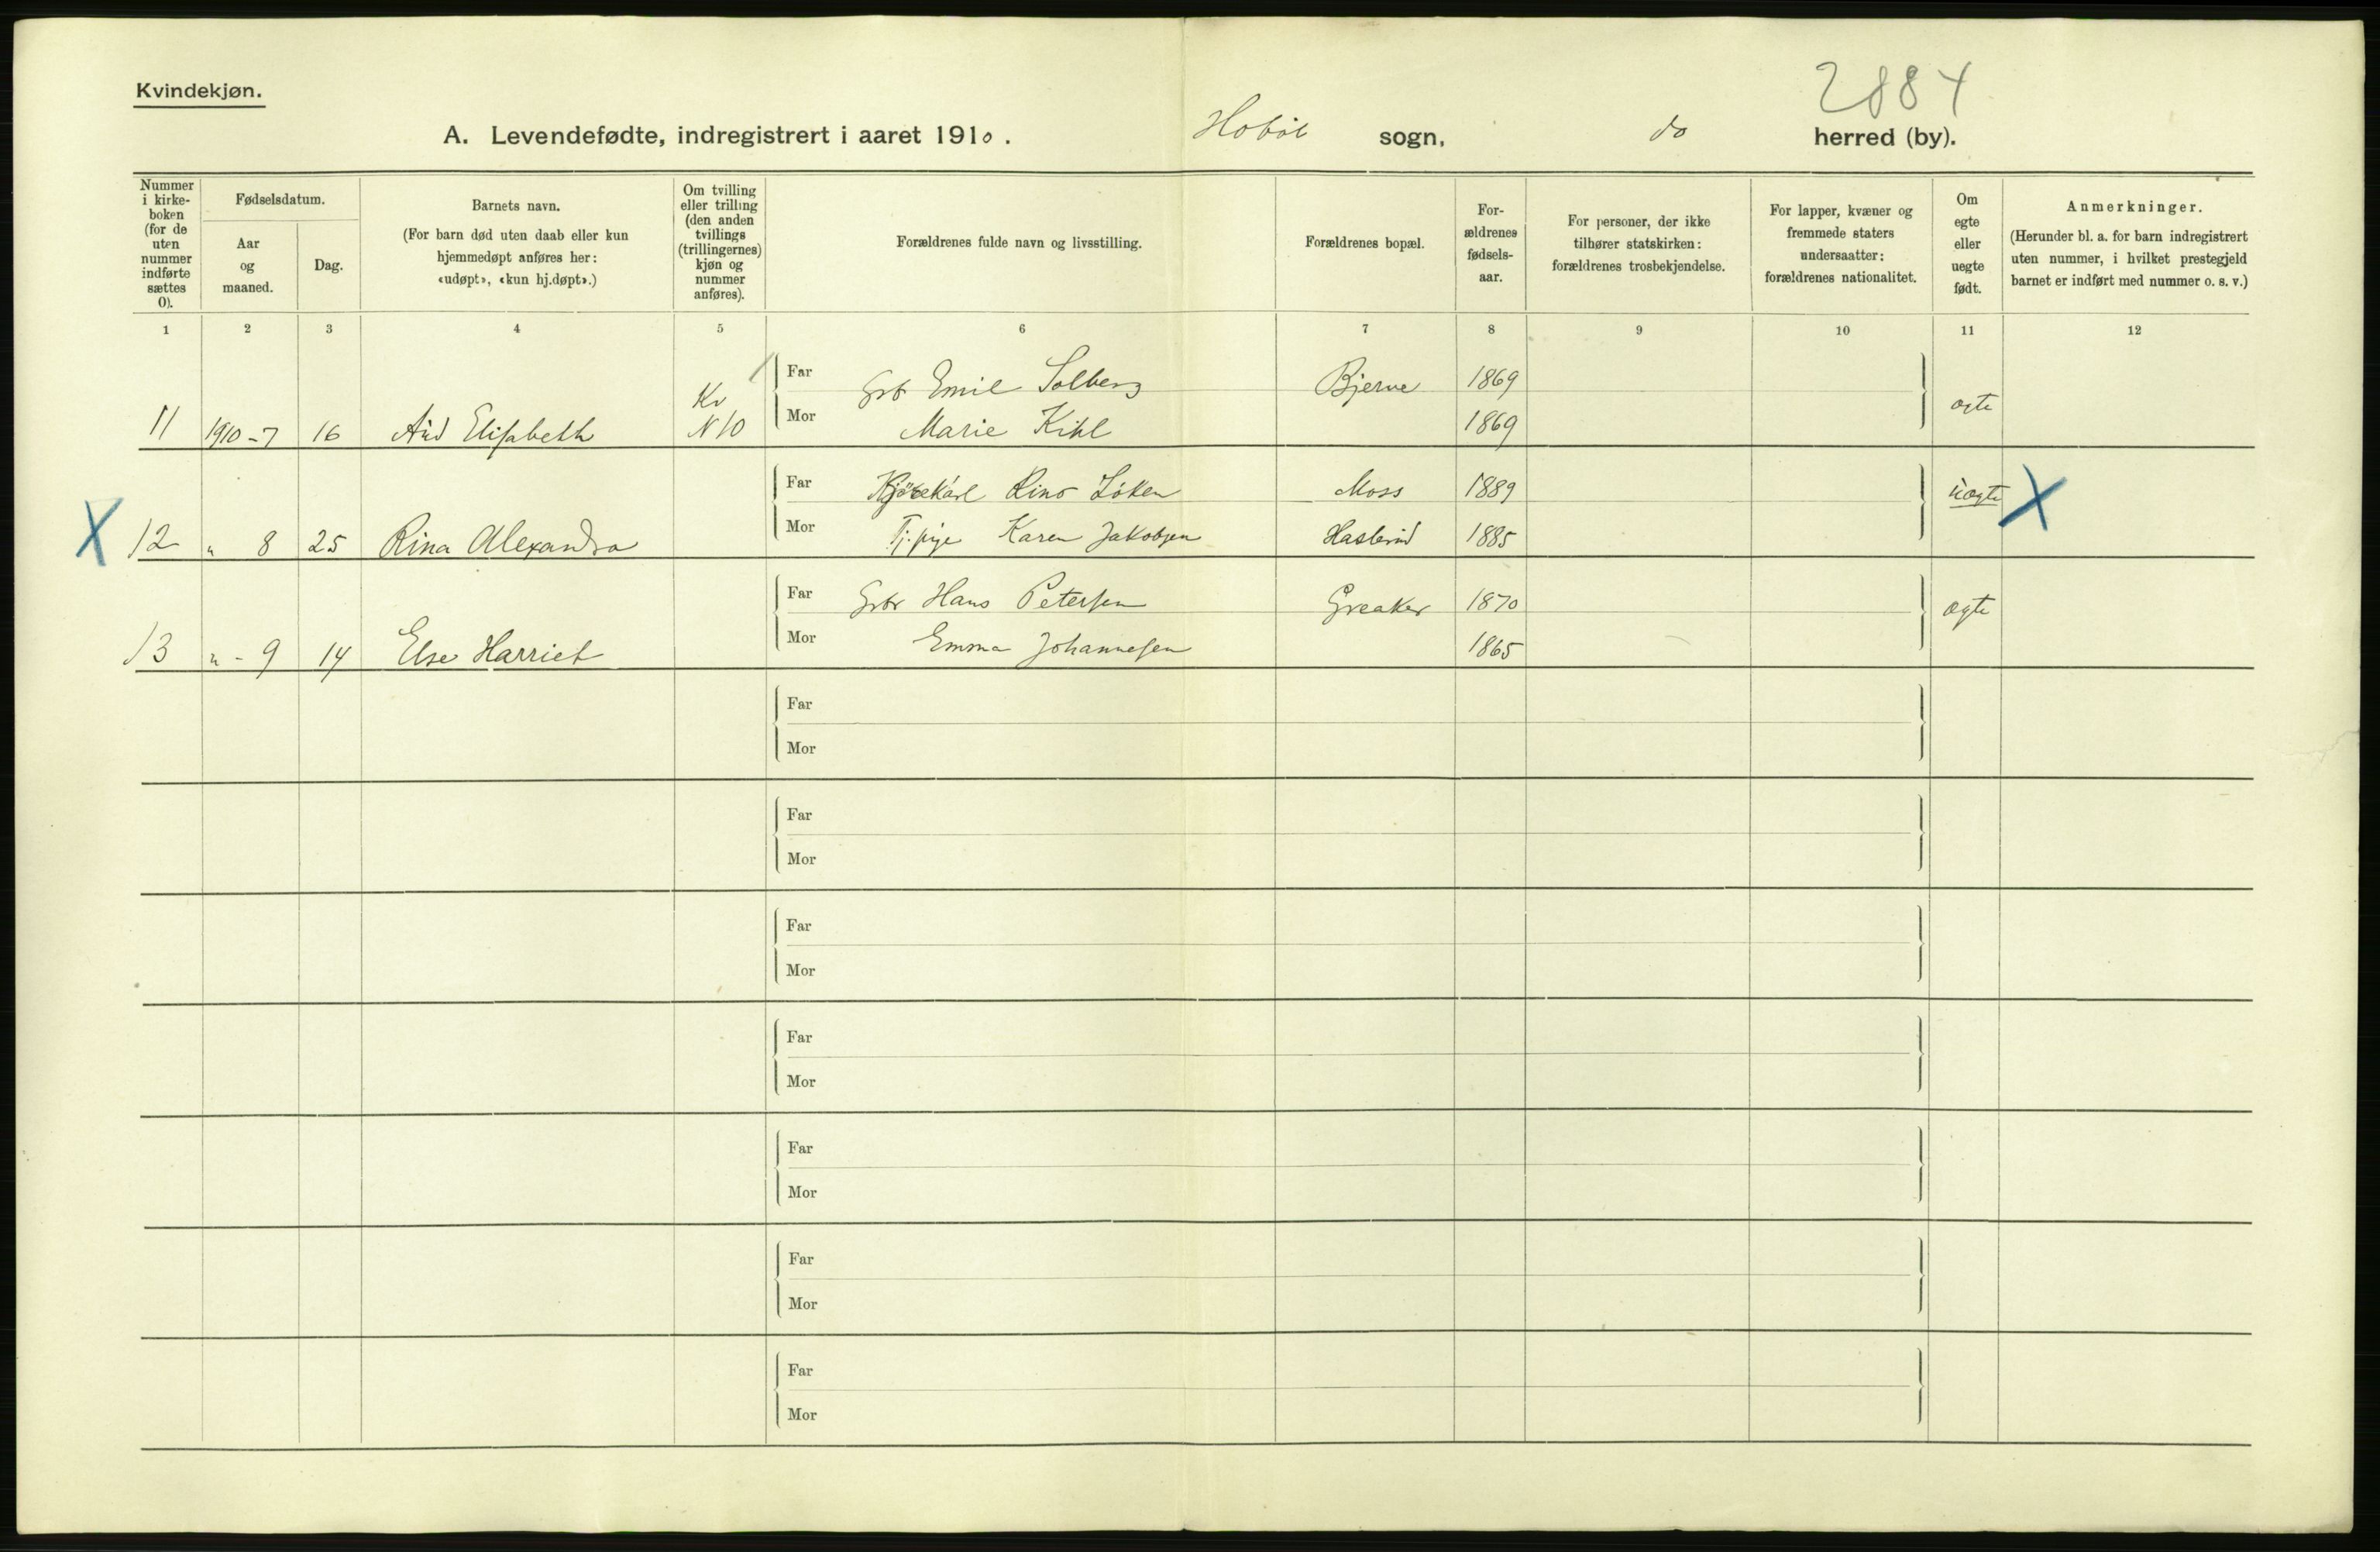 Kvindekjøn.
2884
A. Levendefødte, indregistrert i aaret 1910. Hobøl sogn, do herred (by).
Nummer i kirke-boken (for de uten nummer indførte sættes 0).
Fødselsdatum.
Aar og maaned.
Dag.
Barnets navn.
(For barn død uten daab eller kun hjemmedøpt anføres her: «udøpt», «kun hj.døpt».)
Om tvilling eller trilling (den anden tvillings (trillingernes) kjøn og nummer anføres).
Forældrenes fulde navn og livsstilling.
Forældrenes bopæl.
For-ældrenes fødsels-aar.
For personer, der ikke tilhører statskirken: forældrenes trosbekjendelse.
For lapper, kvæner og fremmede staters undersaatter: forældrenes nationalitet.
Om egte eller uegte født.
Anmerkninger.
(Herunder bl. a. for barn indregistrert uten nummer, i hvilket prestegjeld barnet er indført med nummer o. s. v.)
1 2 3 4 5 6 7 8 9 10 11 12
Far Gbr Emil Solberg Bjerve 1869
11 1910-7 16 Aud Elisabeth Kv N 10 Mor Marie Kihl 1869 ægte
Far Kjørekarl Rino Løken Moss 1889 uægte X
X 12 " 8 25 Rina Alexandra Mor Tj.pige Karen Jakobsen 1885
Far Gbr Hans Petersen Greaker 1870 ægte
13 " - 9 14 Else Harriet Mor Emma Johannesen 1865
Far
Mor
Far
Mor
Far
Mor
Far
Mor
Far
Mor
Far
Mor
Far
Mor